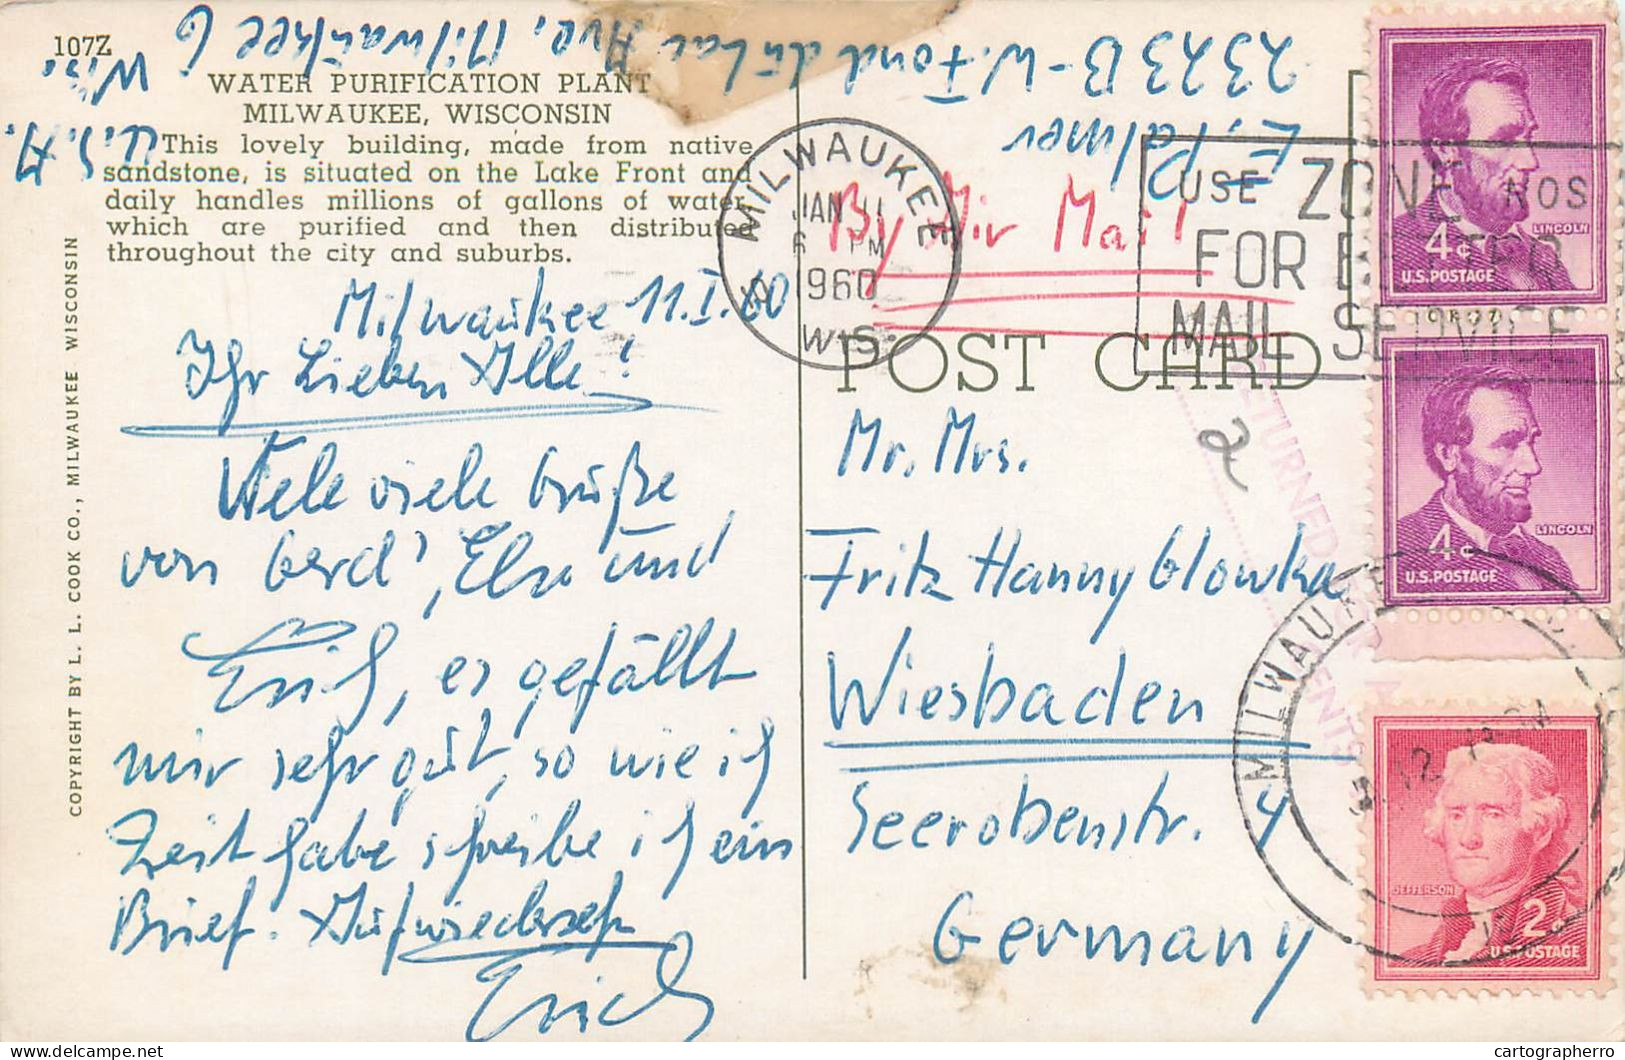 107Z
WATER PURIFICATION PLANT
MILWAUKEE, WISCONSIN
This lovely building, made from native
sandstone, is situated on the Lake Front and
daily handles millions of gallons of water
which are purified and then distributed
throughout the city and suburbs.
COPYRIGHT BY L. L. COOK CO., MILWAUKEE WISCONSIN
E. Palmer
2323 B - W. Fond du Lac Ave, Milwaukee 6
Wis.
U.S.A.
Milwaukee 11.I.60
Ihr Lieben Alle!
Viele viele Grüße
von Gerd, Elsa und
Erich, es gefällt
mir sehr gut, so wie ich
Zeit habe schreibe ich ein
Brief. Aufwiedersehn
Erich
By Air Mail
POST CARD
Mr. Mrs.
Fritz Hanny Glowka
Wiesbaden
Seerobenstr. 4
Germany
2
MILWAUKEE
JAN 11
6 PM
1960
WIS.
USE ZONE NOS
FOR BETTER
MAIL SERVICE
RETURNED
4¢
LINCOLN
U.S. POSTAGE
4¢
LINCOLN
U.S. POSTAGE
JEFFERSON
2¢
U.S. POSTAGE
MILWAUKEE
cartographerro
delcampe.net